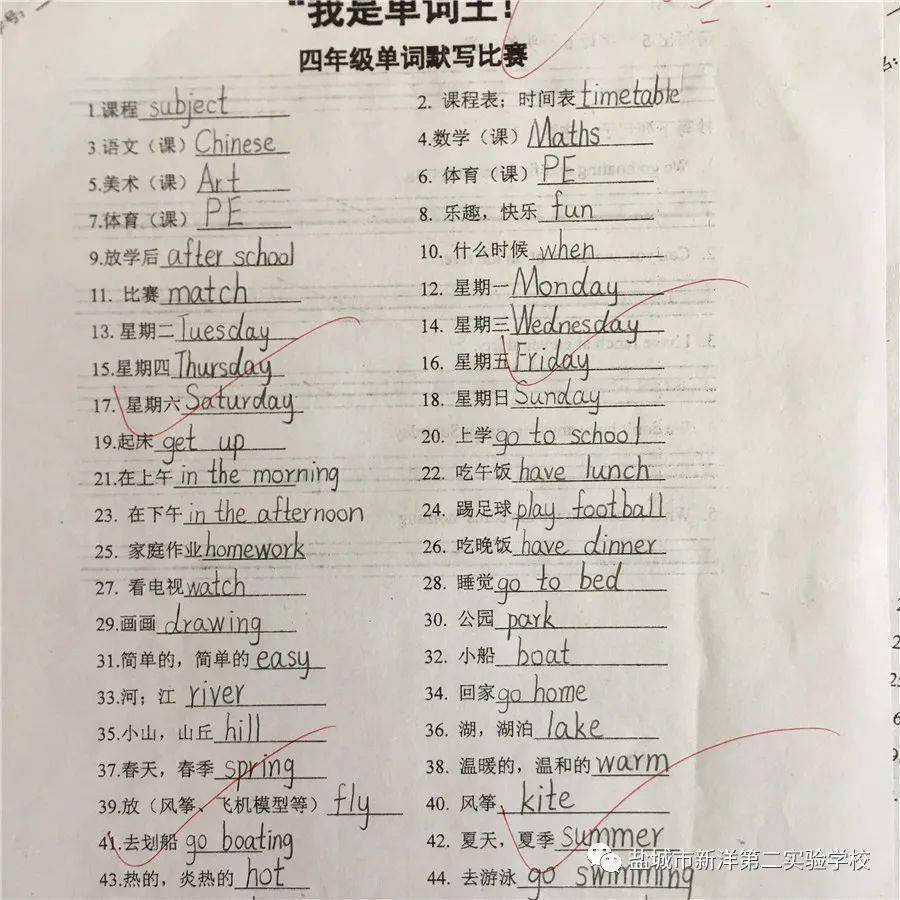 "我是单词王！
四年级单词默写比赛
1.课程 subject 2. 课程表；时间表 timetable
3 语文（课）Chinese 4.数学（课）Maths
5.美术（课）Art 6. 体育（课）PE
7.体育（课）PE 8. 乐趣，快乐 fun
9.放学后 after school 10. 什么时候 when
11. 比赛 match 12. 星期一 Monday
13. 星期二 Tuesday 14. 星期三 Wednesday
15.星期四 Thursday 16. 星期五 Friday
17. 星期六 Saturday 18. 星期日 Sunday
19.起床 get up 20. 上学 go to school
21.在上午 in the morning 22. 吃午饭 have lunch
23. 在下午 in the afternoon 24. 踢足球 play football
25. 家庭作业 homework 26. 吃晚饭 have dinner
27. 看电视 watch 28. 睡觉 go to bed
29.画画 drawing 30. 公园 park
31.简单的，简单的 easy 32. 小船 boat
33.河；江 river 34. 回家 go home
35.小山，山丘 hill 36. 湖，湖泊 lake
37.春天，春季 spring 38. 温暖的，温和的 warm
39.放（风筝、飞机模型等）fly 40. 风筝 kite
41.去划船 go boating 42. 夏天，夏季 summer
43.热的，炎热的 hot 44. 去游泳 go swimming
盐城市新洋第二实验学校